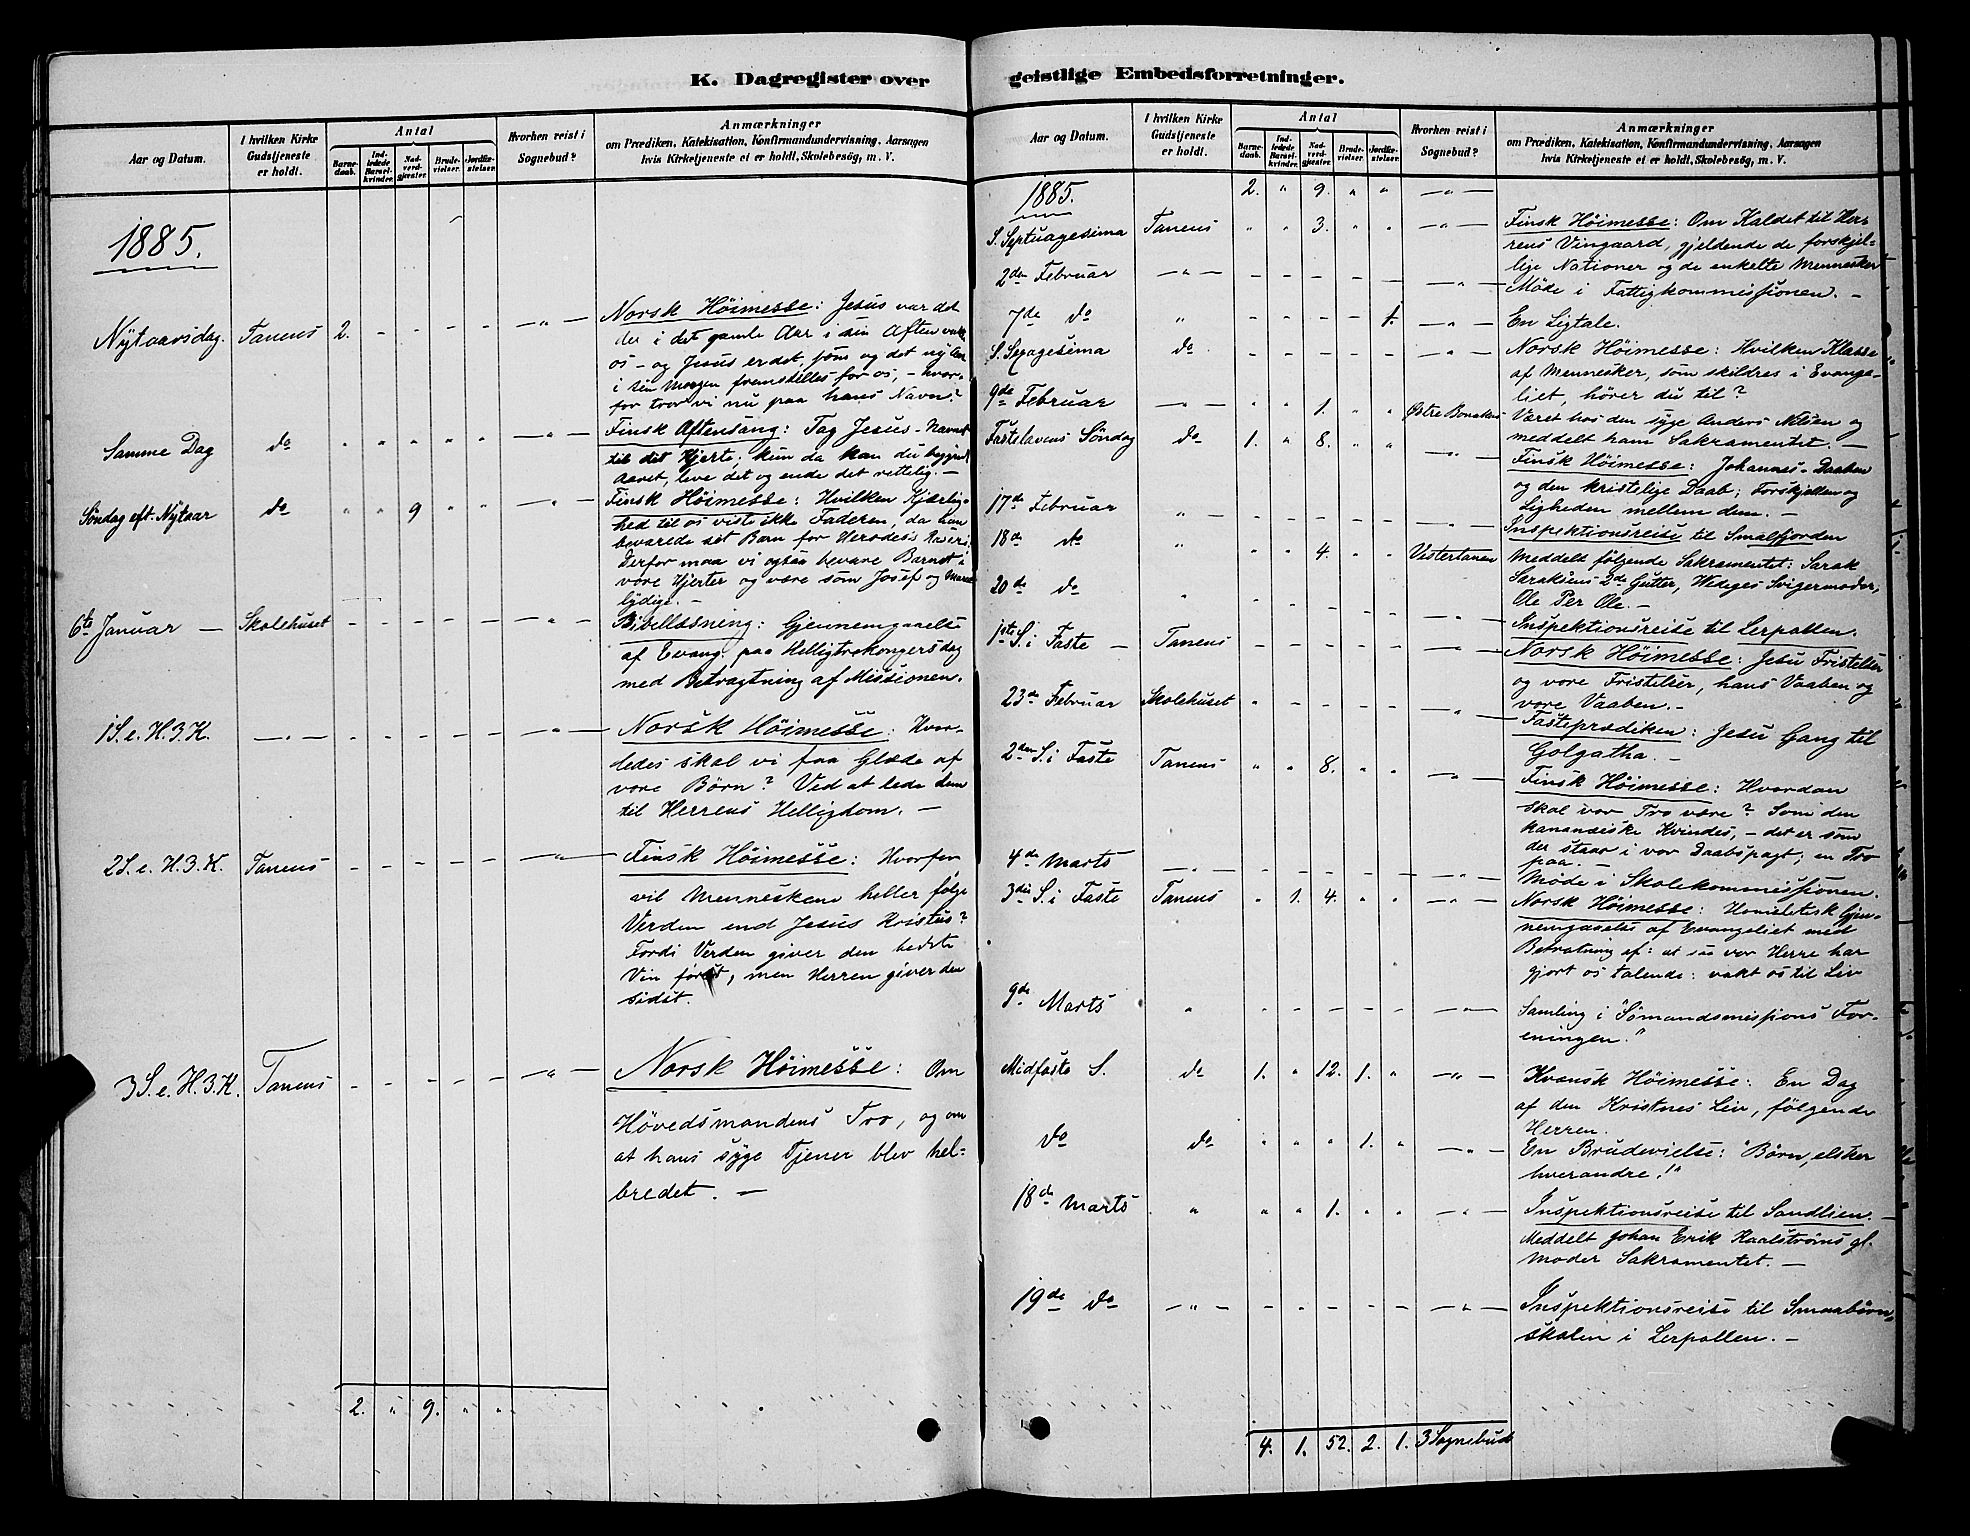 K. Dagregister over
Aar og Datum.
I hvilken Kirke Gudstjeneste er holdt.
Antal
Barne-daab.
Ind-ledede Barsel-kvinder.
Nad-verd-gjæster.
Brude-vielser.
Jordfæ-stelser.
Hvorhen reist i Sognebud?
Anmærkninger
om Prædiken, Katekisation, Konfirmandundervisning, Aarsagen
hvis Kirketjeneste ei er holdt, Skolebesög, m. V.
1885.
Nytaarsdag. Tanens 2. - - - - - " -
Norsk Höimesse: Jesus var det
der i det gamle Aar i sin Aften
os - og Jesus er det, som og det ny Aar
i sin Morgen fremstilles for os, - hvor-
for tror vi nu paa hans Navn?
Samme Dag do " " " " " - " -
Finsk Aftensang: Tag Jesus-Navnet
til dit Hjerte; kun da kan du begynde
Aaret, leve det og ende det rettelig. -
Söndag eft. Nytaar do " " 9 " " - " -
Finsk Höimesse: Hvilken Kjærlig-
hed til os viste ikke Faderen, da han
bevarede sit Barn for Herodes's Raseri.
Derfor maa vi ogsaa bevare Barnet i
vore Hjerter og være som Josef og Maria
lydige. -
6te Januar - Skolehuset - - - - - - " -
Bibellæsning: Gjennemgaaelse
af Evang. paa Helligtrekongersdag
med Betragtning af Missionen.
1 S. e. H. 3. K. - " - - - - - - - " -
Norsk Höimesse: Hvor-
ledes skal vi faa Glæde af
vore Börn? Ved at lede dem
til Herrens Helligdom. -
2 S. e. H. 3. K. Tanens - - - - - - " -
Finsk Höimesse: Hvorfor
vil Menneskene heller følge
Verden end Jesus Kristus?
Fordi Verden giver den bedste
Vin först, men Herren giver den
sidst.
3 S. e. H. 3. K. Tanens - - - - - - " -
Norsk Höimesse: Om
Hövedsmandens Tro, og om
at hans syge Tjener blev hel-
bredet. -
2. " 9. " "
geistlige Embedsforretninger.
Aar og Datum.
I hvilken Kirke Gudstjeneste er holdt.
Antal
Barne-daab.
Ind-ledede Barsel-kvinder.
Nad-verd-gjæster.
Brude-vielser.
Jordfæ-stelser.
Hvorhen reist i Sognebud?
Anmærkninger
om Prædiken, Katekisation, Konfirmandundervisning, Aarsagen
hvis Kirketjeneste ei er holdt, Skolebesög, m. V.
1885. 2. " 9. " " - " -
S. Septuagesima Tanens " " 3. " " - " -
Finsk Höimesse: Om Kaldet til Her-
rens Vingaard, gjeldende de forskjel-
lige Nationer og de enkelte Mennesker
2den Februar - " - - - - - - - " -
Möde i Fattigkommissionen. -
7de do " - - - - 1. - " -
En Ligtale.
S. Sexagesima do - - - - - - " -
Norsk Höimesse: Hvilken Klasse
af Mennesker, som skildres i Evange-
liet, hörer du til?
9de Februar - " - - - 1. " " Østre Bonakas
Været hos den syge Anders Nilsen og
meddelt ham Sakramentet. -
Fastelavens Söndag do 1. " 8. " " - " -
Finsk Höimesse: Johannes-Daaben
og den kristelige Daab; Forskjellen og
Ligheden mellem dem. -
17de Februar " - - - - - - " -
Inspektionsreise til Smalfjorden
18de do " - - 4. " " Vestertanen
Meddelt følgende Sakramentet: Sarak
2de Gutter, Svigermoder,
Ole Per Ole. -
20de do " - - - - - - " -
Inspektionsreise til Lerpollen.
1ste S. i Faste - Tanens - - - - - - " -
Norsk Höimesse: Jesu Fristelser
og vore Fristelser, hans Vaaben og
vore Vaaben. -
23de Februar Skolehuset - - - - - - " -
Fasteprædiken: Jesu Gang til
Golgatha. -
2den S. i Faste Tanens " " 8. " " - " -
Finsk Höimesse: Hvordan
skal vor Tro være? Som den
kananæiske Kvindes, - det er som
der staar i vor Daabspagt; en Tro
paa. -
4de Marts - " - - - - - - - " -
Möde i Skolekommissionen.
3die S. i Faste Tanens " 1. 4. " " - " -
Norsk Höimesse: Homiletisk Gjen-
nemgaaelse af Evangeliet med
Betratning af: at saa vor Herre har
gjort os talende: vakt os til Liv
9de Marts " - - - - - - " -
Samling i "Sömandsmissions For-
eningen."
Midfaste S. do 1. " 12. 1. " - " -
Kvænsk Höimesse: En Dag
af den Kristnes Liv, fölgende
Herren.
do do " " " 1. " - " -
En Brudevielse: "Börn, elsker
hverandre!"
18de Marts " " " 1. " " - " -
Inspektionsreise til Sandlien. -
Meddelt Johan Erik Kaalströms gl.
Moder Sakramentet. -
19de do - " - - - - - - - " -
Inspektionsreise til Smaabörn-
skolen i Lerpollen. -
4. 1. 52. 2. 1. 3 Sognebud